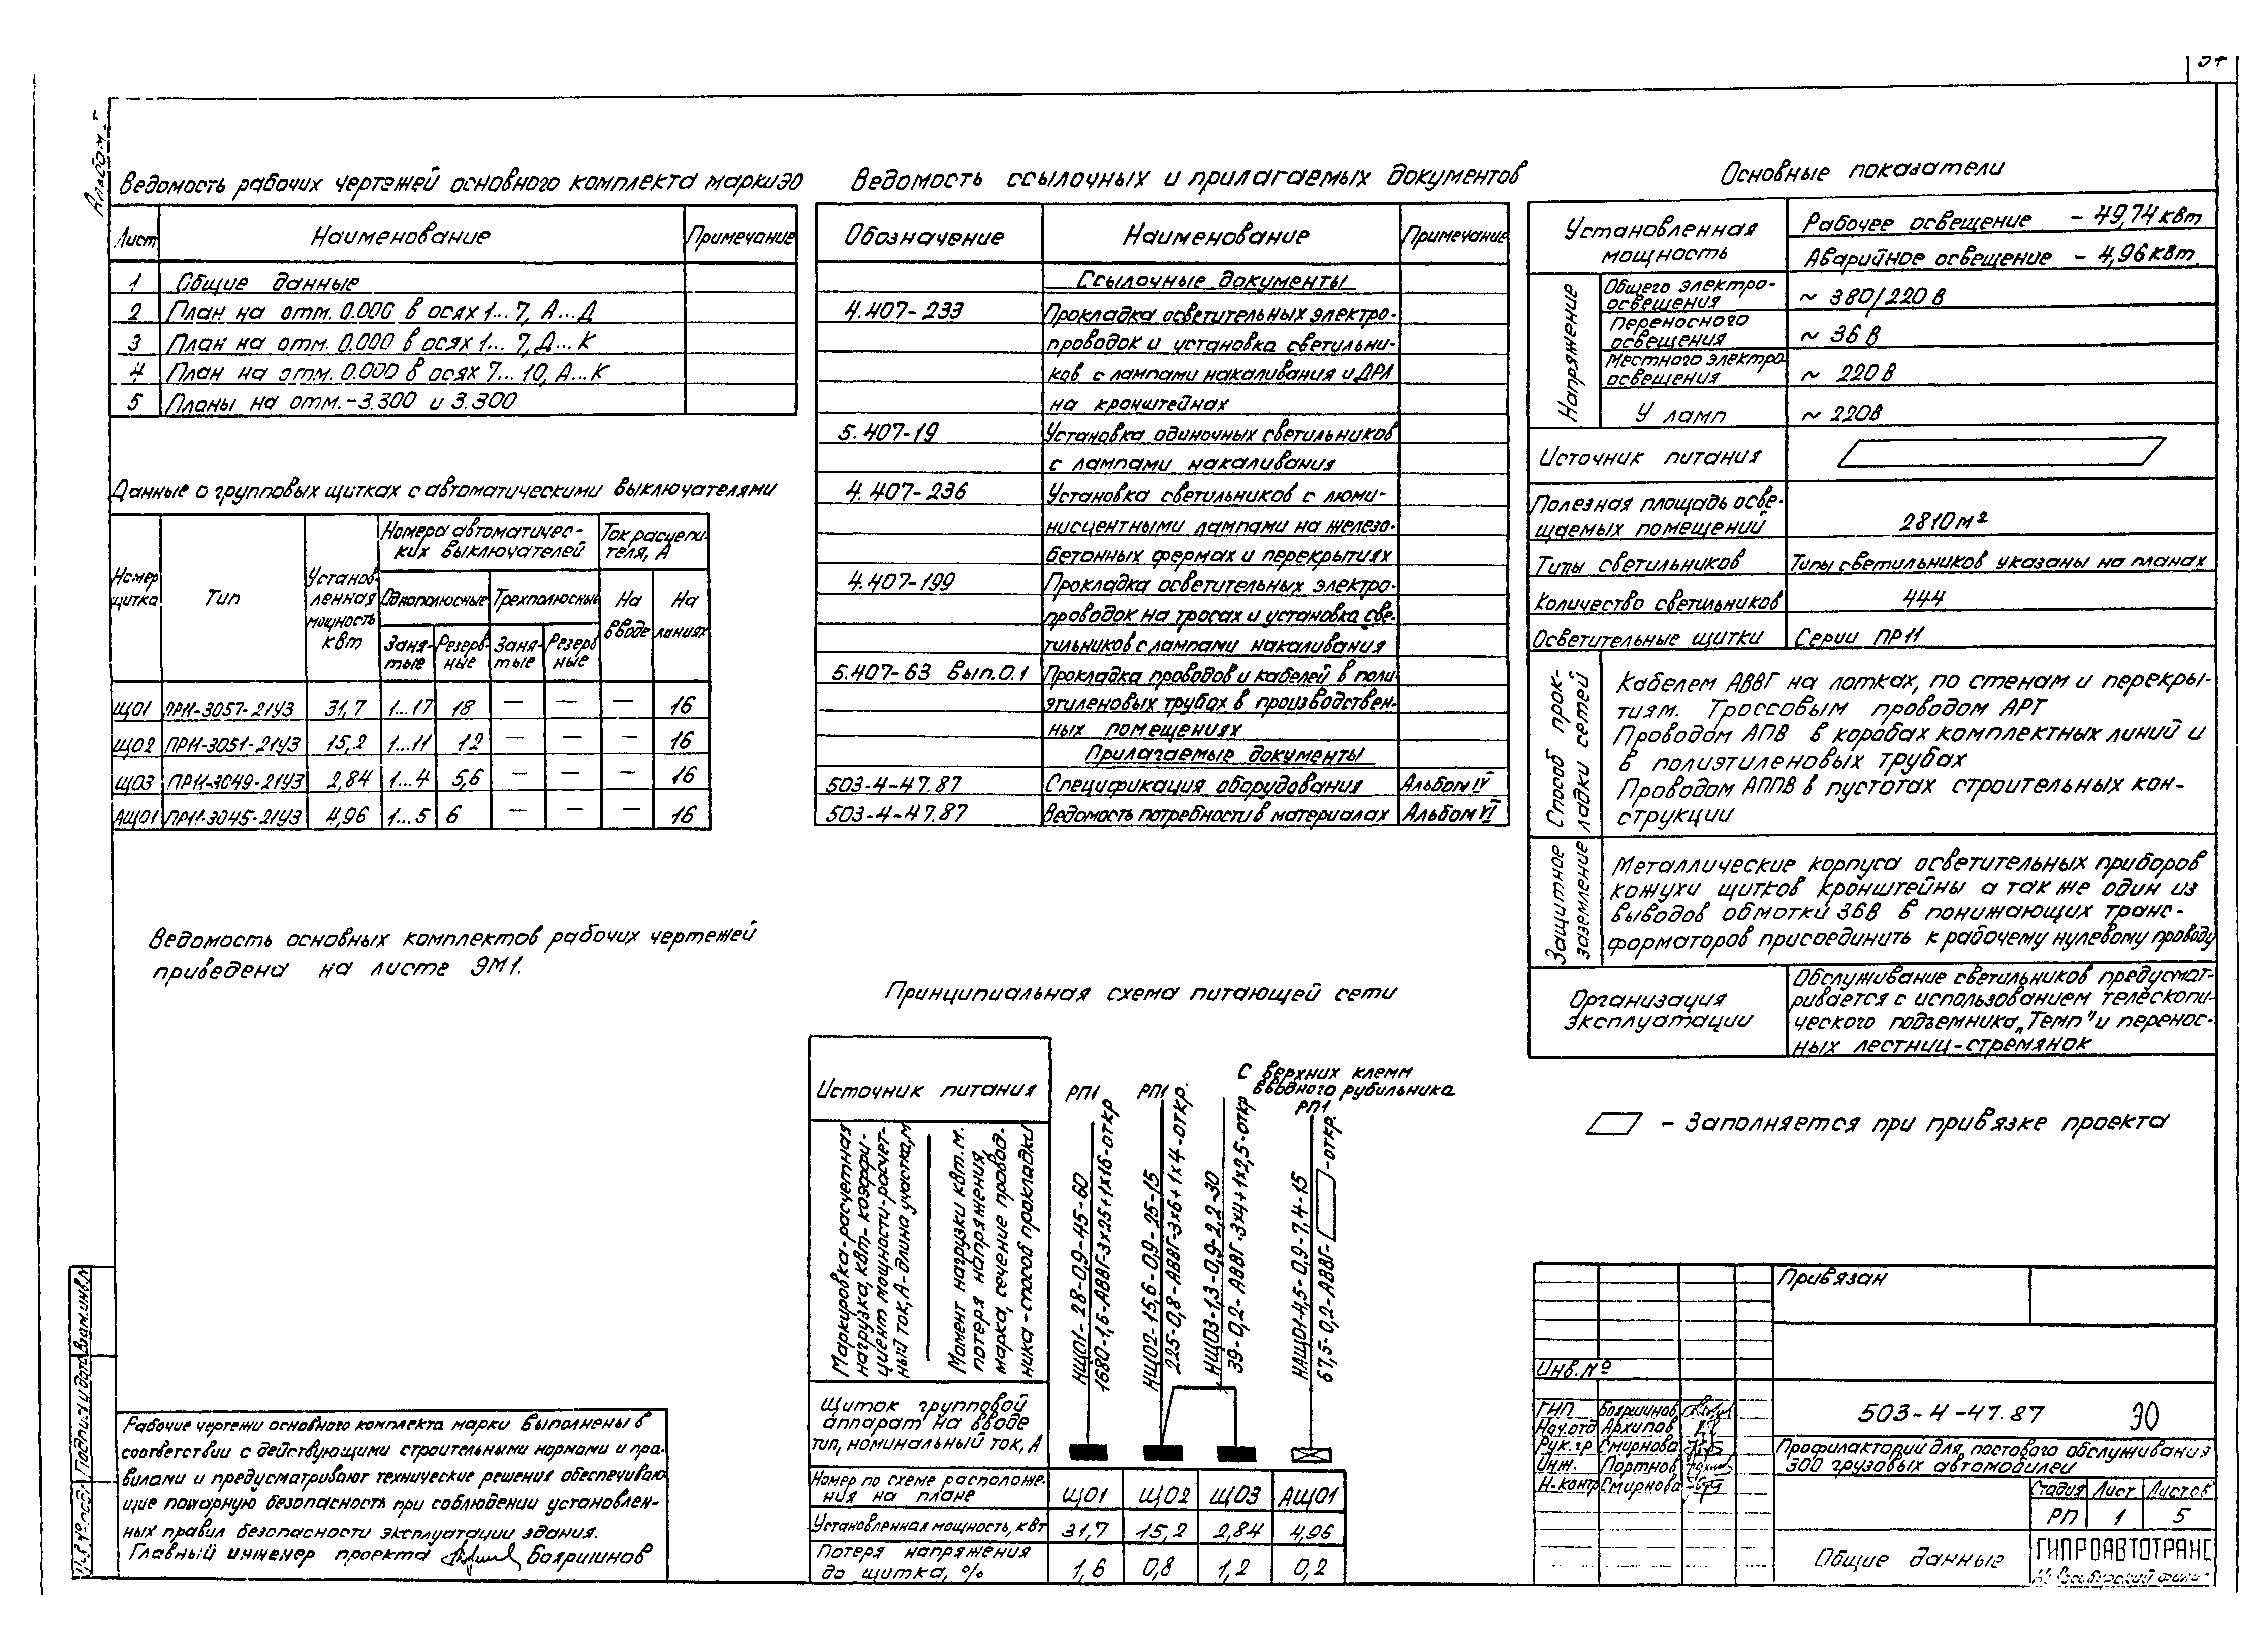 Альбом
Ведомость рабочих чертежей основного комплекта марки ЭО
Лист Наименование Примечание
1 Общие данные
2 План на отм. 0.000 в осях 1...7, А...Д
3 План на отм. 0.000 в осях 1...7, Д...К
4 План на отм. 0.000 в осях 7...10, А...К
5 Планы на отм. -3.300 и 3.300
Данные о групповых щитках с автоматическими выключателями
Номер щитка
Тип
Установленная мощность кВт
Номера автоматичес-
ких выключателей
Ток расцепи-
теля, А
Однополюсные Трехполюсные
На вводе
На линиях
Заня-
тые
Резерв-
ные
Заня-
тые
Резерв
ные
ЩО1 ПР11-3057-21У3 31,7 1...17 18 — — — 16
ЩО2 ПР11-3051-21У3 15,2 1...11 12 — — — 16
ЩО3 ПР11-3049-21У3 2,84 1...4 5,6 — — — 16
АЩО1 ПР11-3045-21У3 4,96 1...5 6 — — — 16
Ведомость основных комплектов рабочих чертежей
приведена на листе ЭМ1.
Рабочие чертежи основного комплекта марки выполнены в
соответствии с действующими строительными нормами и пра-
вилами и предусматривают технические решения обеспечиваю
щие пожарную безопасность при соблюдении установлен-
ных правил безопасности эксплуатации здания.
Главный инженер проекта Бояршинов
Взам.инв.№
Подпись и дата
Ведомость ссылочных и прилагаемых документов
Обозначение Наименование Примечание
Ссылочные документы
4.407-233 Прокладка осветительных электро-
проводок и установка светильни-
ков с лампами накаливания и ДРЛ
на кронштейнах
5.407-19 Установка одиночных светильников
с лампами накаливания
4.407-236 Установка светильников с люми-
нисцентными лампами на железо-
бетонных фермах и перекрытиях
4.407-199 Прокладка осветительных электро-
проводок на тросах и установка све-
тильников с лампами накаливания
5.407-63 Вып.0.1 Прокладка проводов и кабелей в поли
этиленовых трубах в производствен-
ных помещениях
Прилагаемые документы
503-4-47.87 Спецификация оборудования Альбом IV
503-4-47.87 Ведомость потребности в материалах Альбом VI
Принципиальная схема питающей сети
Источник питания
РП1
РП1
С верхних клемм
вводного рубильника
РП1
Маркировка-расчетная
нагрузка, кВт-коэффи-
циент мощности-расчет-
ный ток, А-длина участка, м
Момент нагрузки кВт.м.
потеря напряжения,
марка, сечение провод-
ника-способ прокладки
НЩО1-28-0,9-45-60
1680-1,6-АВВГ-3х25+1х16-откр
НЩО2-15,6-0,9-25-15
225-0,8-АВВГ-3х6+1х4-откр.
НЩО3-1,3-0,9-2,2-30
39-0,2-АВВГ-3х4+1х2,5-откр
НАЩО1-4,5-0,9-7,4-15
67,5-0,2-АВВГ- -откр.
Щиток групповой
аппарат на вводе
тип, номинальный ток, А
Номер по схеме расположе-
ния на плане
ЩО1 ЩО2 ЩО3 АЩО1
Установленная мощность, кВт 31,7 15,2 2,84 4,96
Потеря напряжения
до щитка, % 1,6 0,8 1,2 0,2
Основные показатели
Установленная
мощность
Рабочее освещение - 49,74 кВт
Аварийное освещение - 4,96 кВт.
Напряжение
Общего электро-
освещения
~ 380/220 В
Переносного
освещения
~ 36 В
Местного электро
освещения
~ 220 В
У ламп ~ 220В
Источник питания
Полезная площадь осве-
щаемых помещений 2810 м²
Типы светильников Типы светильников указаны на планах
Количество светильников 444
Осветительные щитки Серии ПР11
Способ прок-
ладки сетей
Кабелем АВВГ на лотках, по стенам и перекры-
тиям. Троссовым проводом АРТ
Проводом АПВ в коробах комплектных линий и
в полиэтиленовых трубах
Проводом АППВ в пустотах строительных кон-
струкции
Защитное
заземление
Металлические корпуса осветительных приборов
кожухи щитков кронштейны а так же один из
выводов обмотки 36В в понижающих транс-
форматоров присоединить к рабочему нулевому проводу
Организация
эксплуатации
Обслуживание светильников предусмат-
ривается с использованием телескопи-
ческого подъемника „Темп" и перенос-
ных лестниц-стремянок
- Заполняется при привязке проекта
Привязан
Инв.№
ГИП Бояршинов
Нач.отд Архипов
Рук.гр Смирнова
Инж. Портнов
Н-контр Смирнова
503-4-47.87 ЭО
Профилакторий для постового обслуживания
300 грузовых автомобилей
Стадия Лист Листов
РП 1 5
Общие данные
ГИПРОАВТОТРАНС